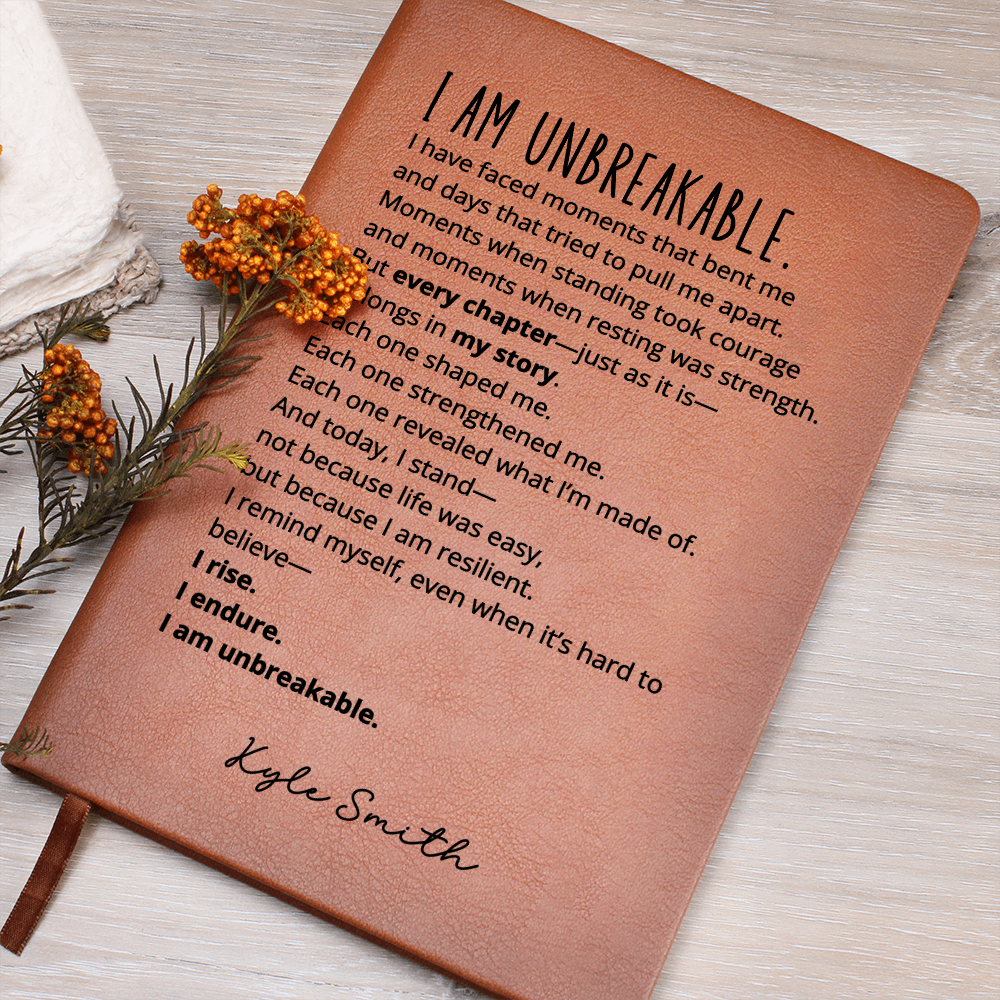 I AM UNBREAKABLE.
I have faced moments that bent me
and days that tried to pull me apart.
Moments when standing took courage
and moments when resting was strength.
But every chapter—just as it is—
longs in my story.
Each one shaped me.
Each one strengthened me.
Each one revealed what I’m made of.
And today, I stand—
not because life was easy,
but because I am resilient.
I remind myself, even when it’s hard to
believe—
I rise.
I endure.
I am unbreakable.
Kyle Smith